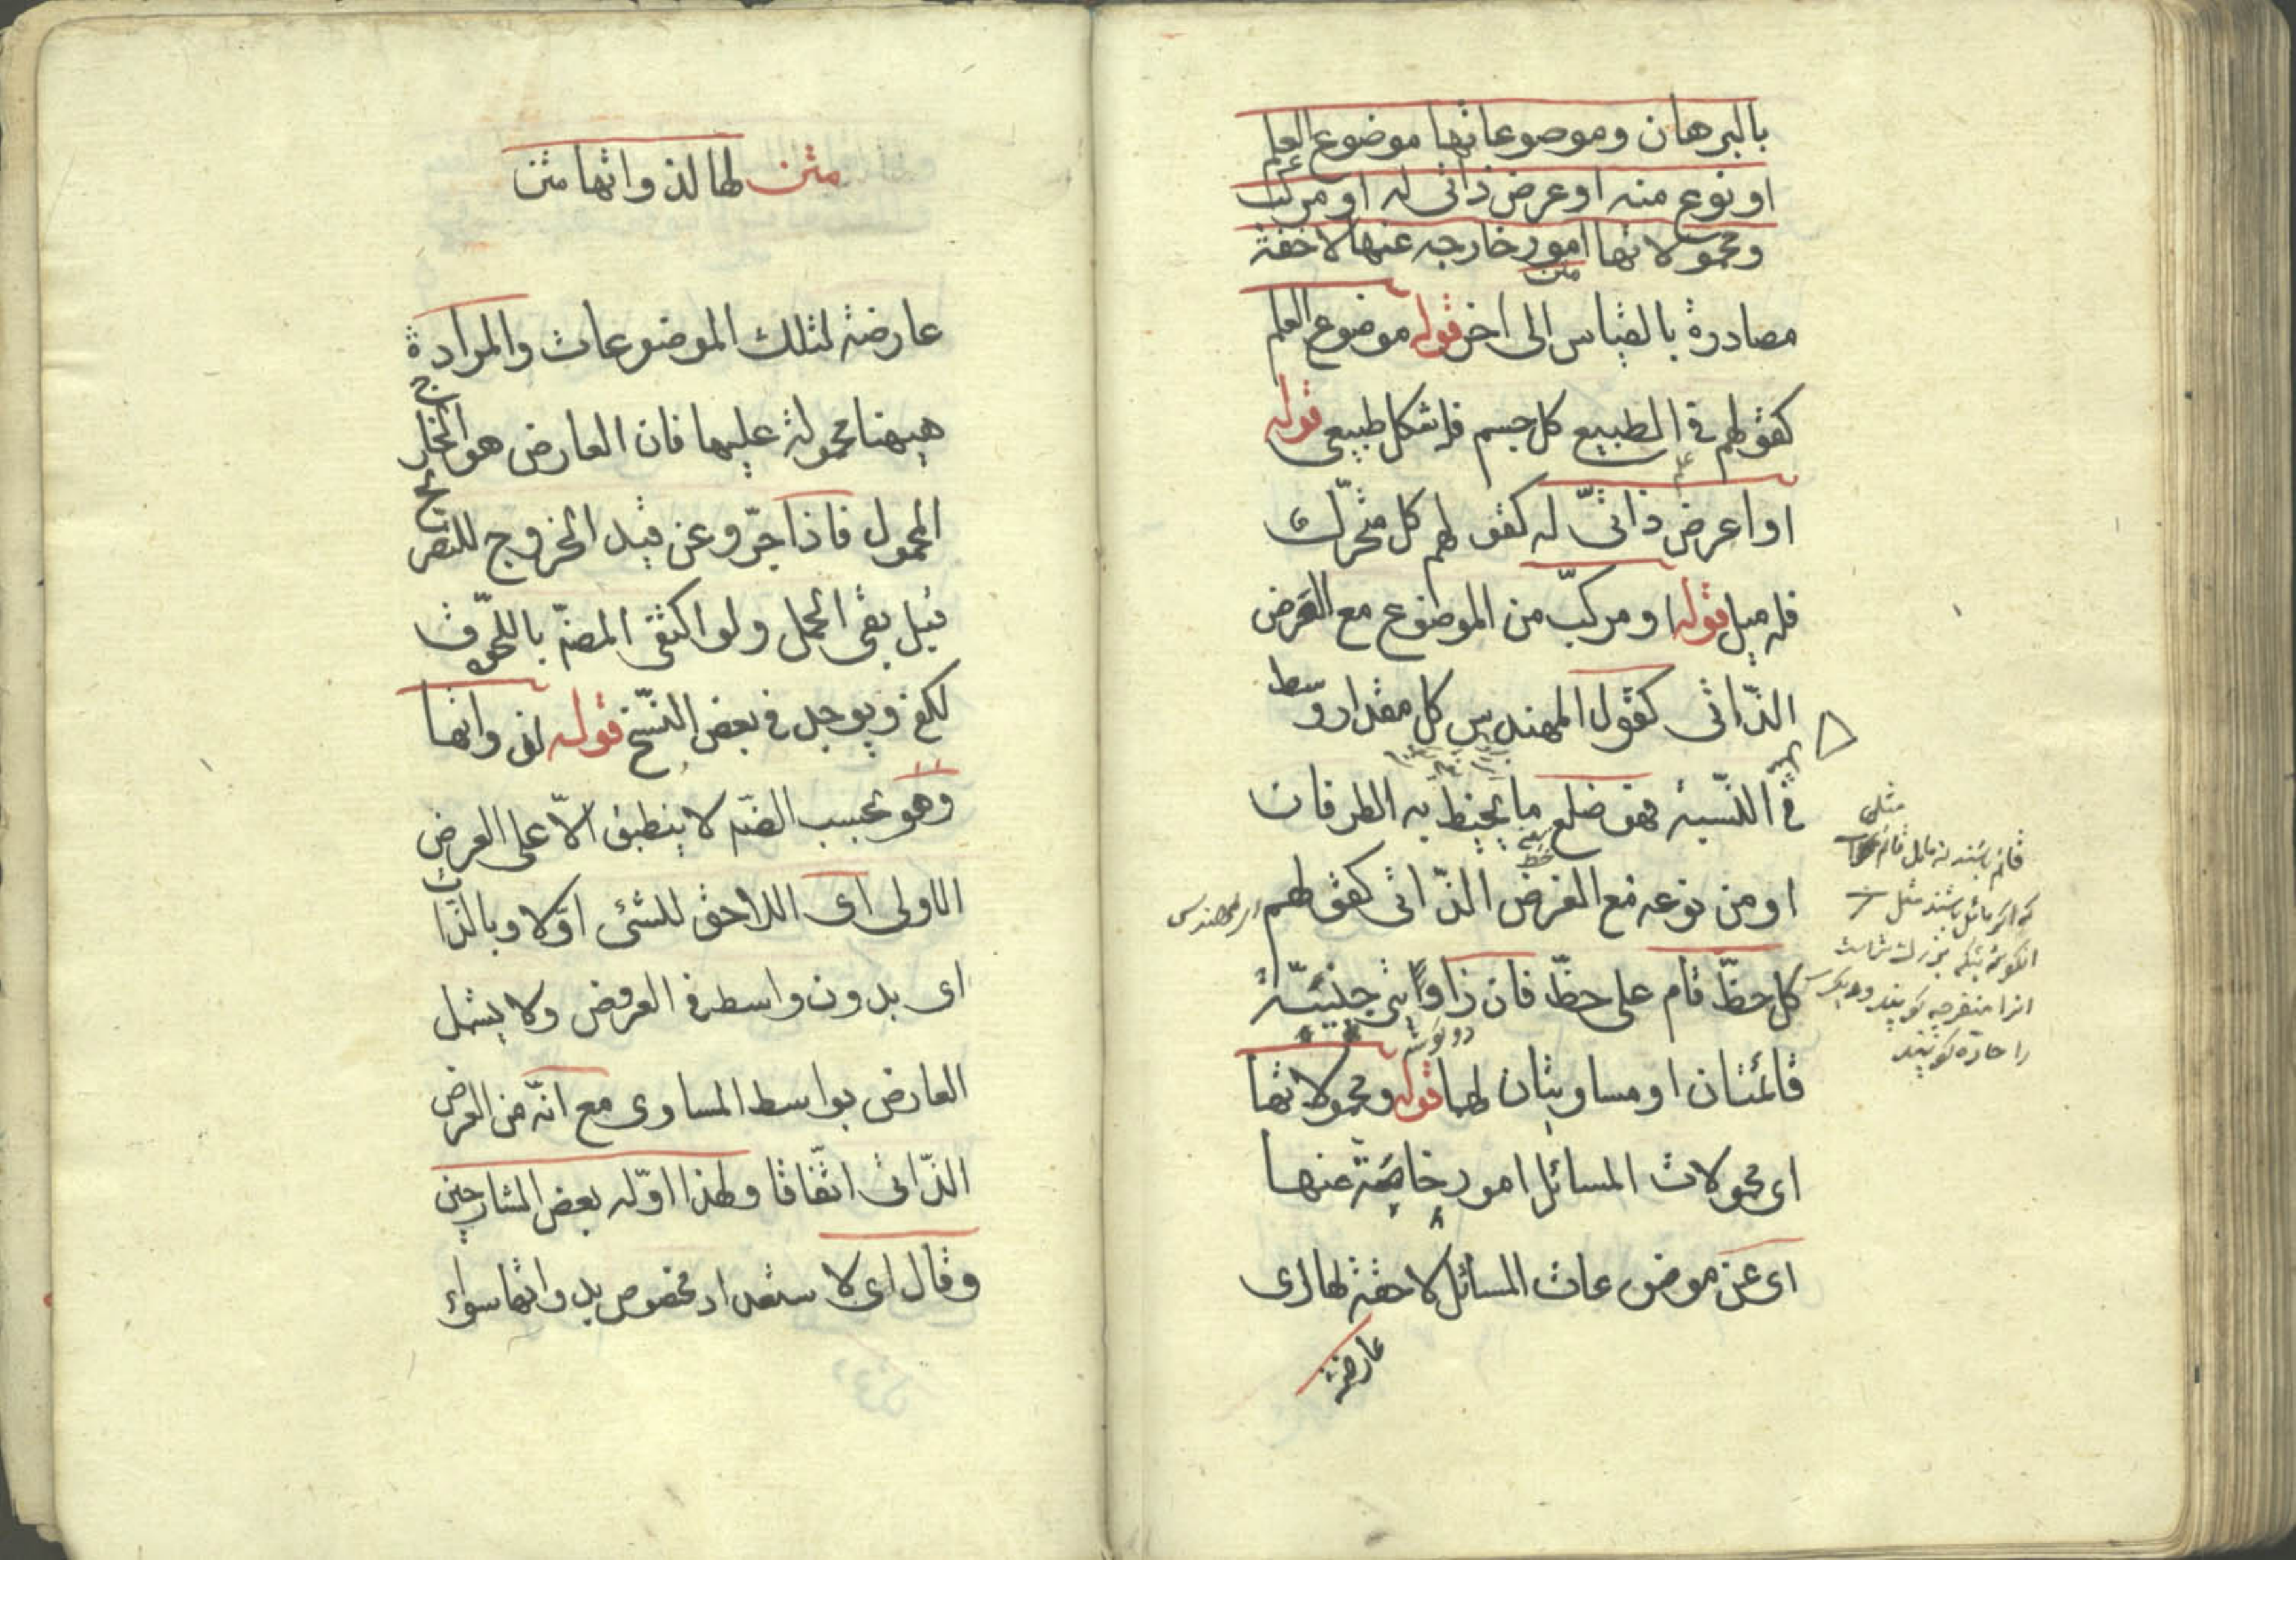 بالبرهان وموصوعاتها موضوع العلم
او نوع منه او عرض ذاتى له او مركب
ومحمولاتها امور خارجه عنها لاحقة
متن
مصادرة بالقياس الى اخر قوله موضوع العلم
كقولهم فى الطبيع كل جسم فله شكل طبيعى قوله
علم
او اعرض ذاتىّ له كقولهم كل متحرّك
فله ميل قوله او مركبّ من الموضوع مع العرض
الذّاتى كقول المهندس كل مقدار وسط
فى النّسبة فهو ضلع ما يحيط به الطرفان
او من نوعه مع العرض الذّاتى كقولهم
كل خطّ قام على خطّ فان زاويتى جنبيّة
دو گوشه
قائمتان او مساويتان لهما قوله ومحمولاتها
اى محمولات المسائل امور خارجة عنها
اى عن موضوعات المسائل لاحقة لها اى
عارضة
مثلى
را حادّه گويند
متن لها لذواتها متن
عارضة لتلك الموضوعات والمرادة
هيهنا محمولة عليها فان العارض هو الخارج
المحمول فاذا جرّد عن قيد الخروج للتصريح
قبل بقى الحمل ولو اكتفى المصنّ باللحوق
لكفى ويوجد فى بعض النّسخ قوله لذواتها
وهو بحسب الضّم لا ينطبق الاّ على العرض
الاولى اى اللاحق للشئ اوّلا وبالذّات
اى بدون واسطه فى العروض ولا يشمل
العارض بواسطه المساوى مع انّه من العرض
الذّاتى اتّفاقا ولهذا اوّله بعض الشارحين
وقال اى لاستعداد مخصوص بذواتها سواء